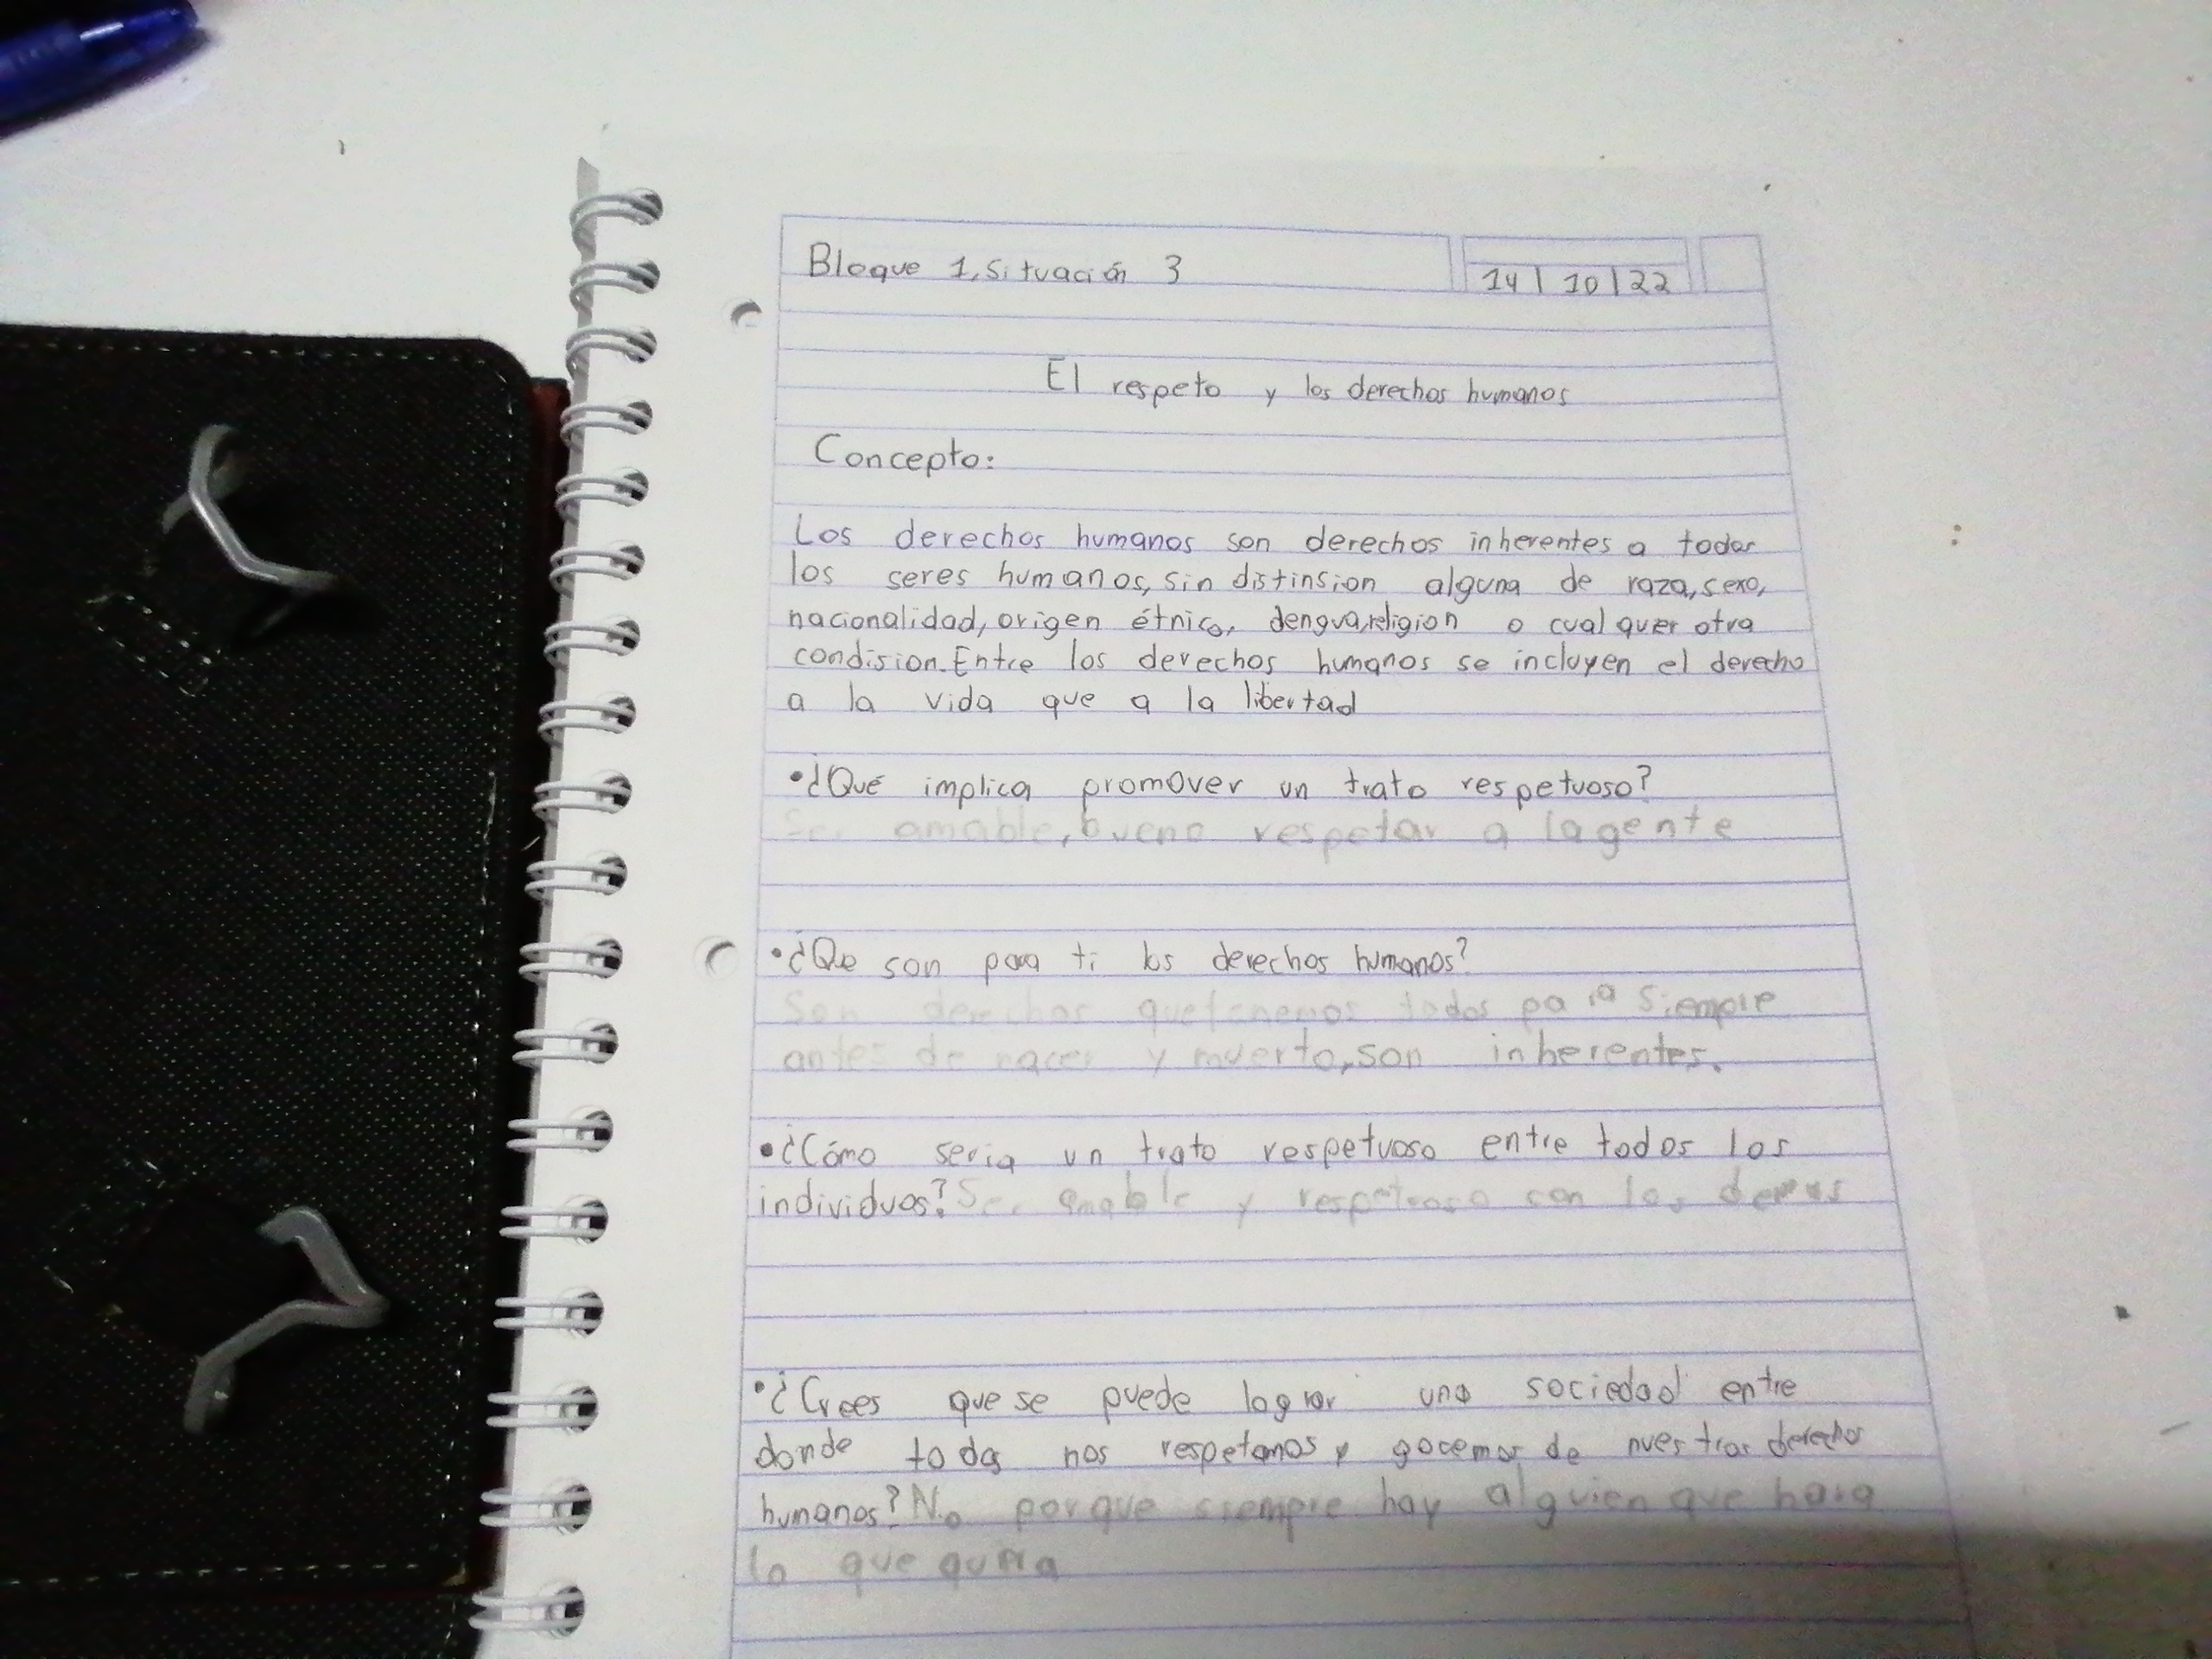 Bloque 1, Situación 3
14 | 10 | 22
El respeto y los derechos humanos
Concepto:
Los derechos humanos son derechos inherentes a todos
los seres humanos, sin distinsion alguna de raza, sexo,
nacionalidad, origen étnico, dengua, religion o cual quer otra
condision. Entre los derechos humanos se incluyen el derecho
a la vida que a la libertad
• ¿Qué implica promover un trato respetuoso?
Ser amable, bueno respetar a la gente
• ¿Que son para ti los derechos humanos?
Son derechos que tenemos todos para siempre
antes de nacer y muerto, son inherentes.
• ¿Cómo seria un trato respetuoso entre todos los
individuos? Ser amable y respetuoso con los demas
• ¿Crees que se puede lograr una sociedad entre
donde todos nos respetamos y gocemos de nuestros derechos
humanos? No porque siempre hay alguien que hara
lo que